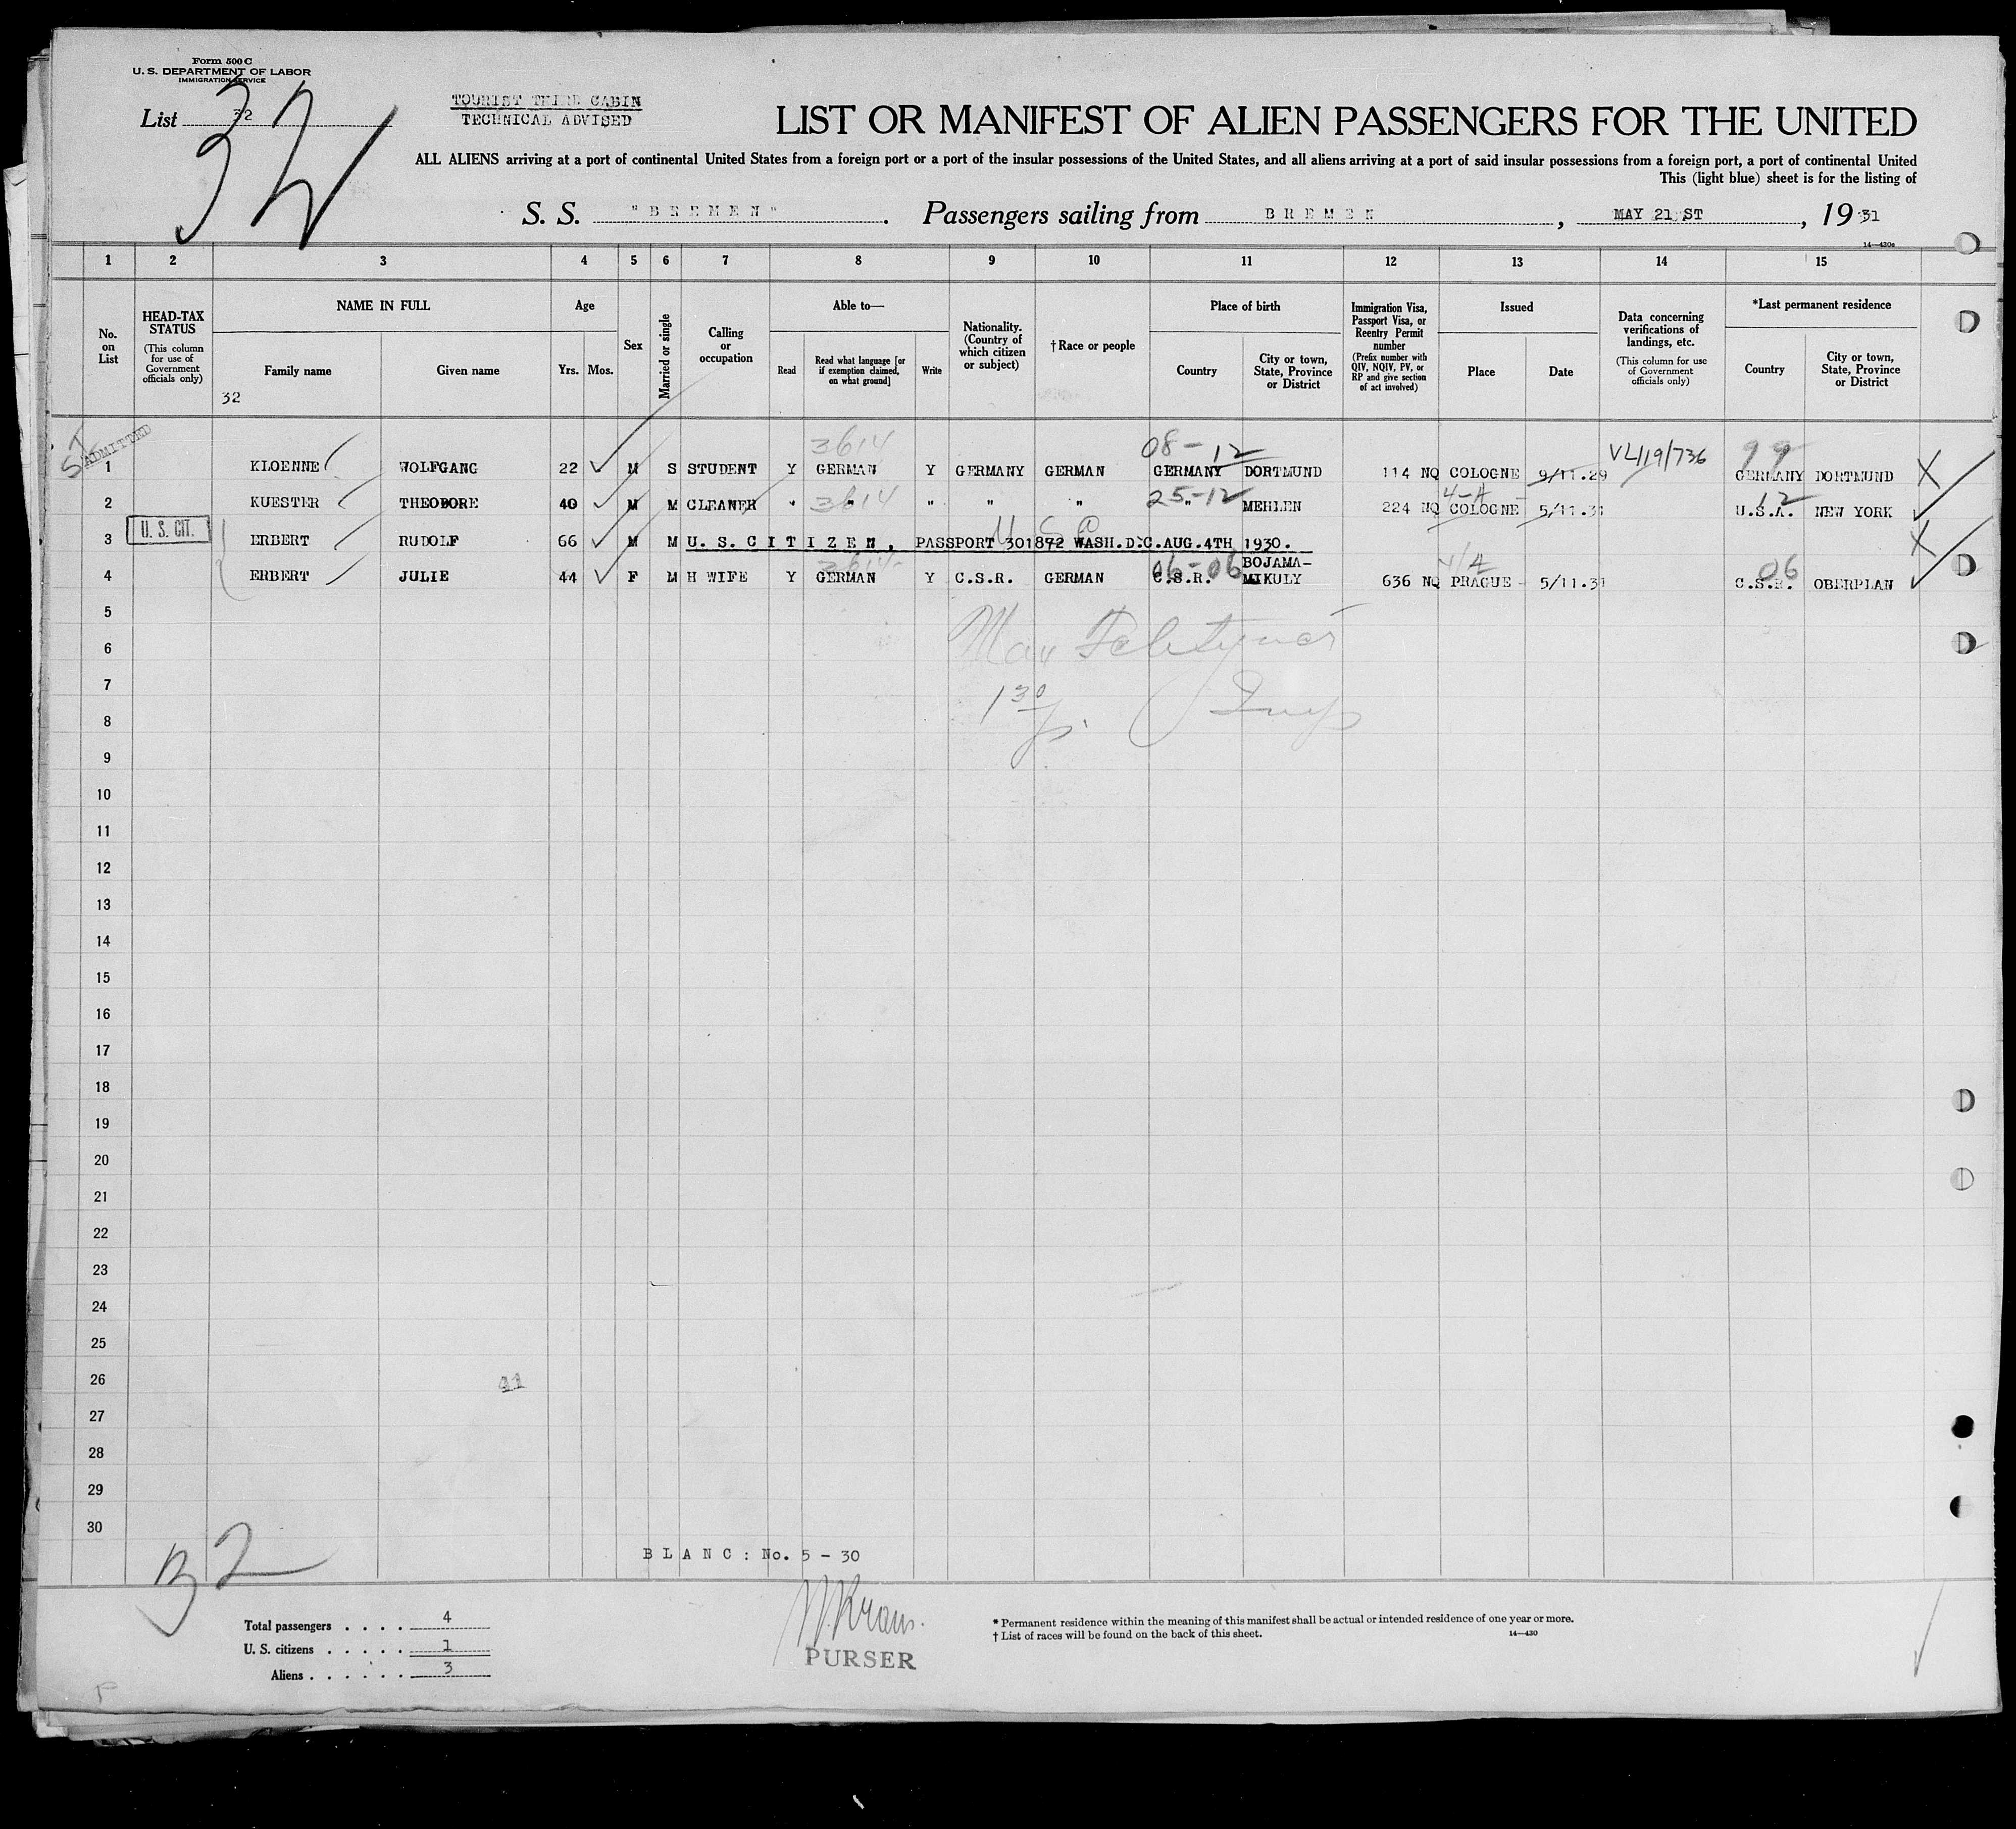 Form 500 C
U. S. DEPARTMENT OF LABOR
IMMIGRATION SERVICE
List 32
32
TOURIST THIRD CABIN
TECHNICAL ADVISED
LIST OR MANIFEST OF ALIEN PASSENGERS FOR THE UNITED
ALL ALIENS arriving at a port of continental United States from a foreign port or a port of the insular possessions of the United States, and all aliens arriving at a port of said insular possessions from a foreign port, a port of continental United
This (light blue) sheet is for the listing of
S. S. "BREMEN". Passengers sailing from BREMEN, MAY 21 ST, 19 31
14—430a
1 2 3 4 5 6 7 8 9 10 11 12 13 14 15
No. on List
HEAD-TAX STATUS
(This column for use of Government officials only)
NAME IN FULL
Family name
Given name
32
Age
Yrs. Mos.
Sex
Married or single
Calling or occupation
Able to—
Read
Read what language [or if exemption claimed, on what ground]
Write
Nationality. (Country of which citizen or subject)
†Race or people
Place of birth
Country
City or town, State, Province or District
Immigration Visa, Passport Visa, or Reentry Permit number
(Prefix number with QIV, NQIV, PV, or RP and give section of act involved)
Issued
Place
Date
Data concerning verifications of landings, etc.
(This column for use of Government officials only)
*Last permanent residence
Country
City or town, State, Province or District
ADMITTED
3614 08-12 VL/19/736 99
1 KLOENNE WOLFGANG 22 M S STUDENT Y GERMAN Y GERMANY GERMAN GERMANY DORTMUND 114 NQ COLOGNE 9/11.29 GERMANY DORTMUND X
3614 25-12 4-A 12
2 KUESTER THEODORE 40 M M CLEANER " " " " " " MEHLEN 224 NQ COLOGNE 5/11.31 U.S.A. NEW YORK
U. S. CIT.
3 ERBERT RUDOLF 66 M M U. S. CITIZEN, PASSPORT 301872 WASH.D.C.AUG.4TH 1930. X
3614 06-06 4/A 06
4 ERBERT JULIE 44 F M H WIFE Y GERMAN Y C.S.R. GERMAN C.S.R. BOJAMA-MIKULY 636 NQ PRAGUE - 5/11.31 C.S.R. OBERPLAN
5
6
7
1 30
8
9
10
11
12
13
14
15
16
17
18
19
20
21
22
23
24
25
26
27
28
29
30
BLANC: No. 5 - 30
Total passengers . . . . 4
U. S. citizens . . . . . 1
Aliens . . . . . . 3
PURSER
* Permanent residence within the meaning of this manifest shall be actual or intended residence of one year or more.
† List of races will be found on the back of this sheet.
14—430